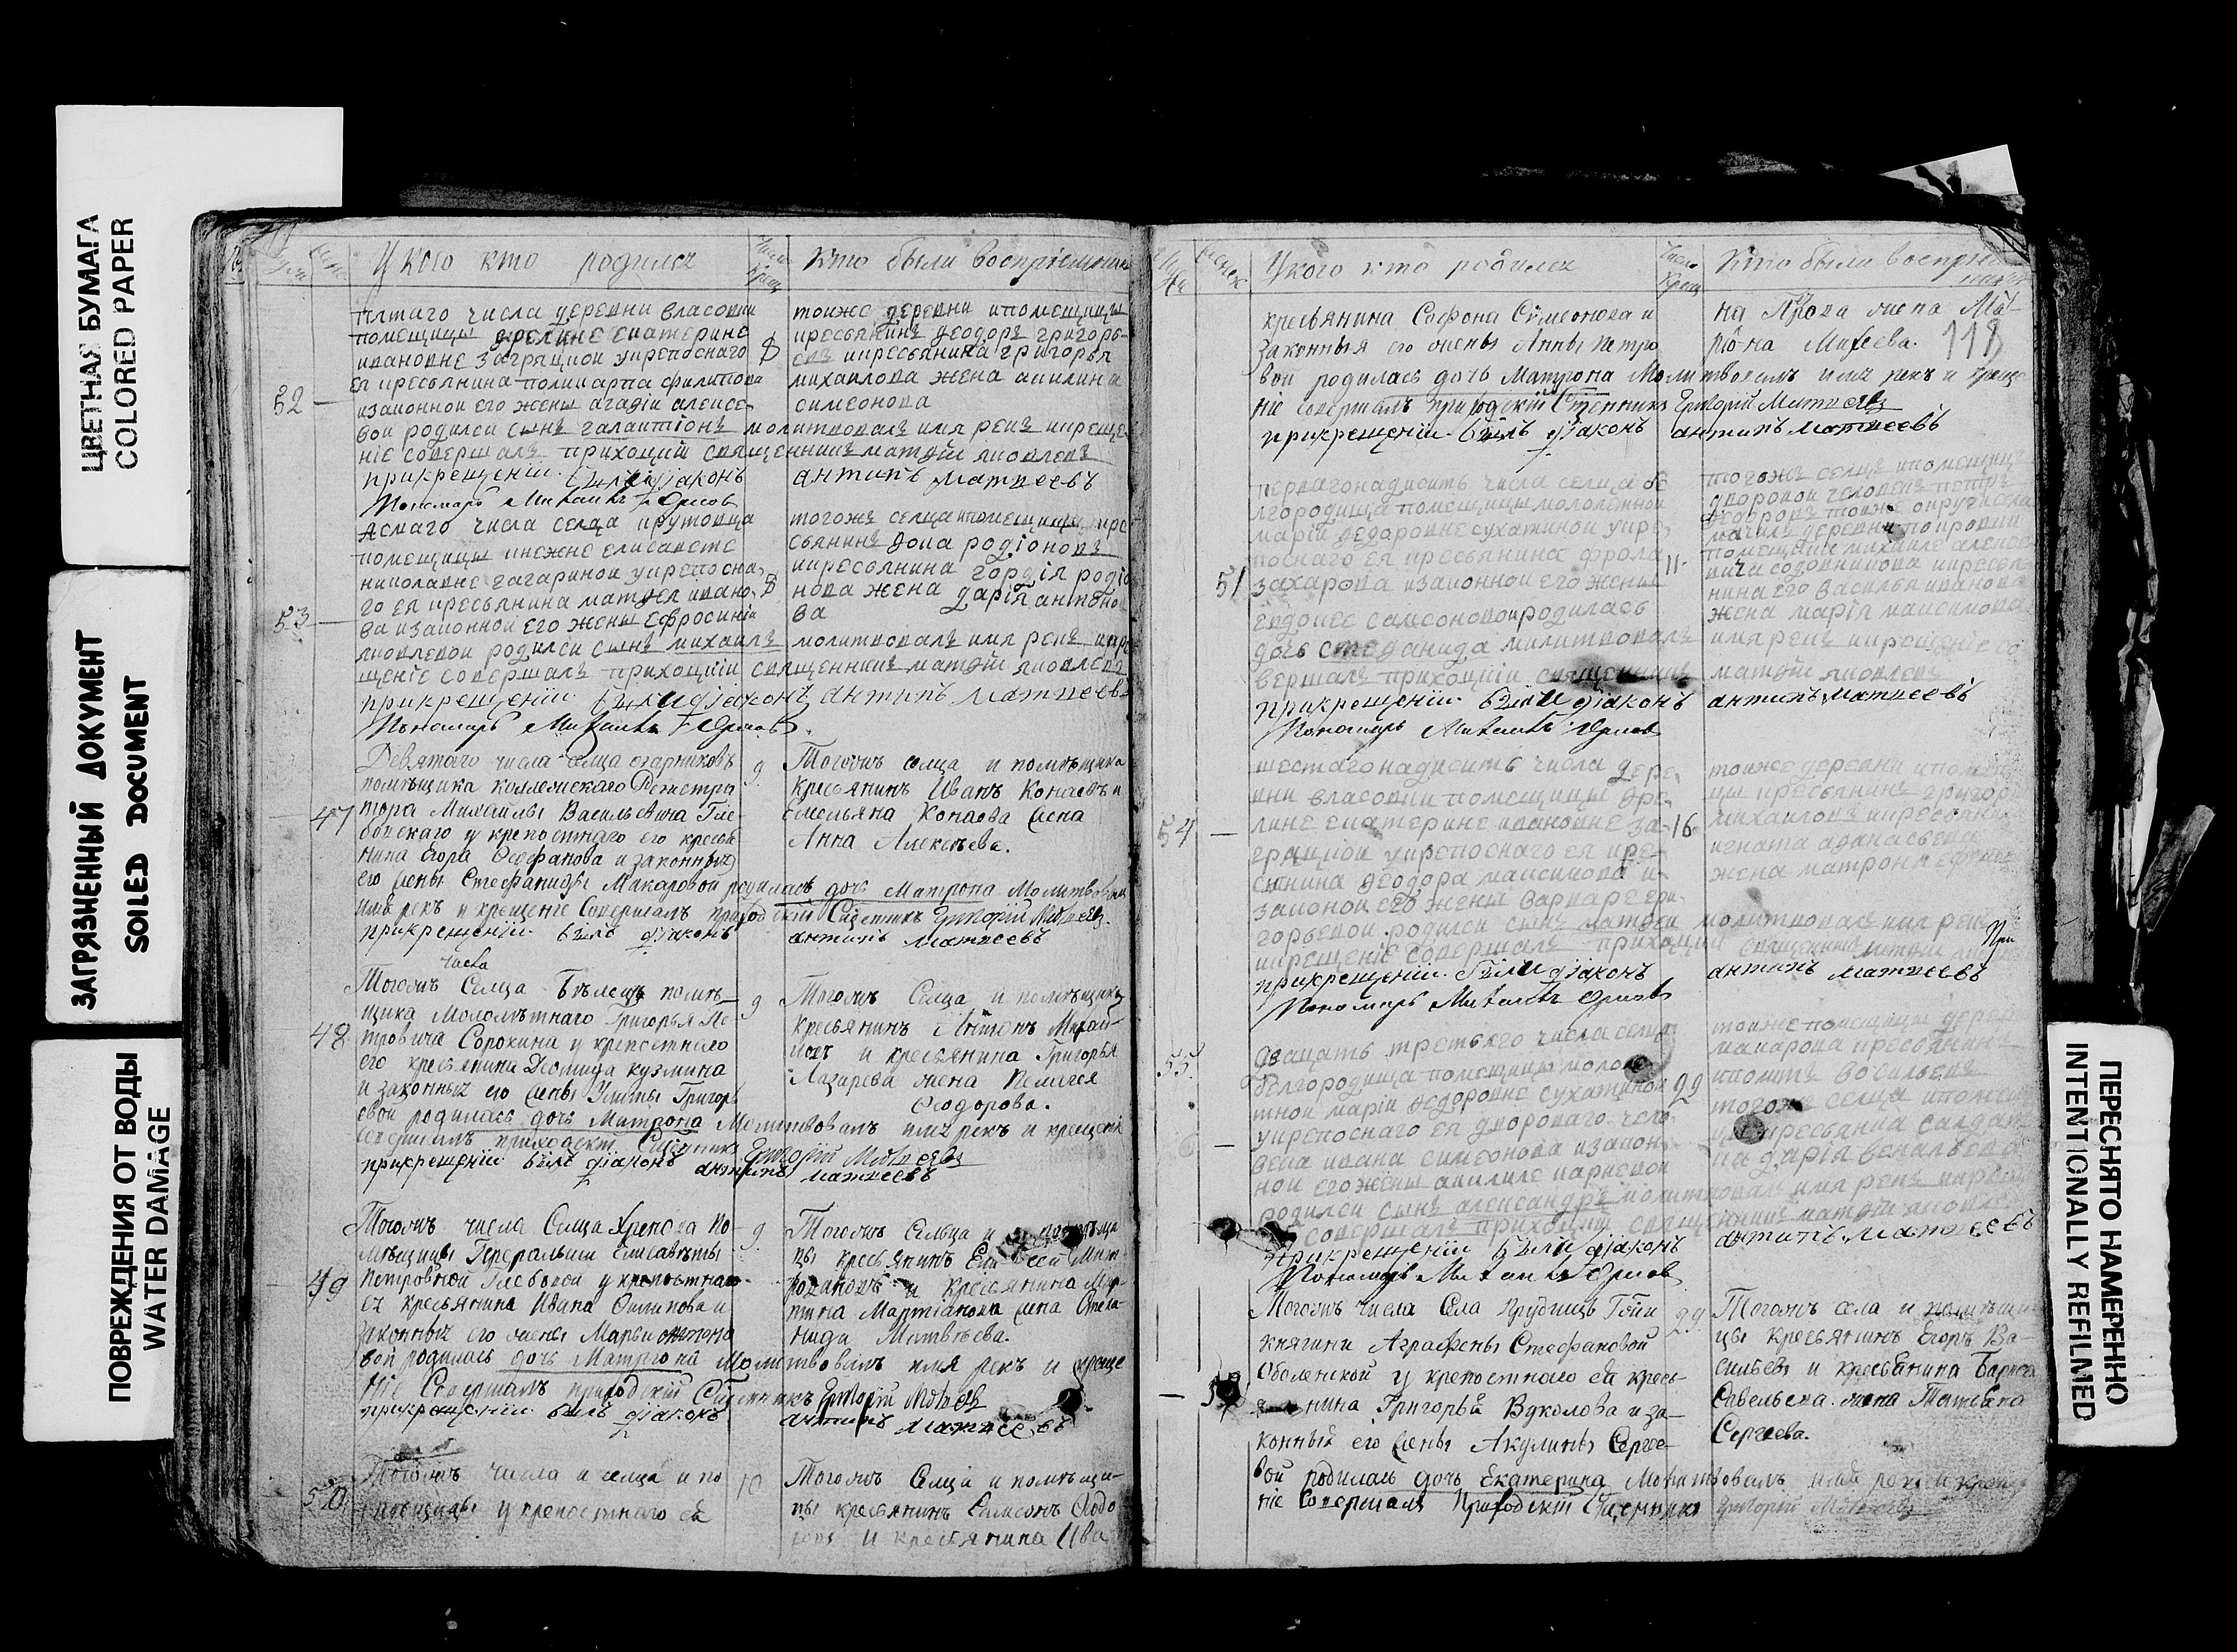 ЦВЕТНАЯ БУМАГА
COLORED PAPER
ЗАГРЯЗНЕННЫЙ ДОКУМЕНТ
SOILED DOCUMENT
ПОВРЕЖДЕНИЯ ОТ ВОДЫ
WATER DAMAGE
У кого кто родился
Кто были восприемники
пятаго числа деревни власовки
помещицы
ивановне загряцкой укрепоснаго 8
ея кресьянина поликарпа филипова
52
изаконной его жены агафiи алексе
вой родился сынъ галактiонъ молитвовалъ имя рекъ икреще
нiе совершалъ приходцкiй священникъ матфiй яковлевъ
прикрещенiи были дiаконъ антипъ матвеевъ
Пономарь Михаилъ Орлов
тоиже деревни ипомещицы
кресьянинъ феодоръ григорь-
евъ икресьянина григорья
михаилова жена акилина
симеонова
осмаго числа селца крутовца
помещицы княжне елисавете
николавне гагариной укрепосна
го ея кресьянина матфея ивано 8
53
ва изаконной его жены ефросинiи
яковлевой родился сынъ михаилъ молитвовалъ имя рекъ икре
щенiе совершалъ приходцкiи священникъ матфiй яковлевъ
прикрещенiи были дiаконъ антипъ матвеевъ
Пономарь Михаилъ Орлов
тогожъ селца ипомещицы кре
сьянинъ фока родiоновъ
икресьянина гордiя родiо
нова жена дарiя антоно
ва
Девятаго числа селца огарниковъ
помѣщика коллежскаго Регистра
47 тора Михайлы Васильевича Гле-
бовскаго у крепостнаго его кресья
нина Егора Феофанова и законныя
его жены Стефаниды Макаровой родилась дочь Матрона Молитвовалъ
имя рекъ и крещенiе Совершалъ приходскiй Священникъ Григорiй Матвеевъ
прикрещенiи былъ дiаконъ антипъ матвеевъ
9
Тогожъ селца и помѣщика
кресьянинъ Иванъ Конаевъ и
Емельяна Конаова жена
Анна Алексѣева.
числа
Тогожъ Селца Бѣлецъ помѣ-
щика Малолѣтнаго Григорья Пе-
48 тровича Сорокина у крепостнаго
его кресьянина Диомида кузмина
и законныя его жены Улиты Григорь
евой родилась дочь Матрона Молитвовалъ имя рекъ и крещенiе
совершалъ приходскiй Священникъ Григорiй Матвеевъ
прикрещенiи былъ дiаконъ антипъ матвеевъ
9
Тогожъ Селца и помѣщика
кресьянинъ Антонъ Михай-
ловъ и кресьянина Григорья
Лазарева жена Пелагея
Феодорова.
Тогожъ числа Селца Хрепова по
мѣщицы Генеральши Елисаветы
49 Петровной Глебовой у крепостнаго
ея кресьянина Ивана Филипова и
законныя его жены Марьи антоно
вой родилась дочь Матрона Молитвовалъ имя рекъ и креще
нiе Совершалъ приходскiй Священникъ Григорiй Матвеевъ
прикрещенiи былъ дiаконъ антипъ матвеевъ
9
Тогожъ Сельца и помѣщи
цы кресьянинъ
и кресьянина Мар
тина Мартiанова жена Степа-
нида Матвѣева.
50 Тогожъ числа и селца и по
мѣщицы у крепостнаго ея
10
Тогожъ Селца и помѣщи-
цы кресьянинъ Симеонъ Федо
ровъ и кресьянина Ива
У кого кто родился
Кто были восприемники
118
кресьянина Софона Симеонова и
законныя его жены Анны Петро
вой родилась дочь Матрона Молитвовалъ имя рекъ и креще
нiе совершалъ приходскiй Священникъ Григорiй Матвеевъ
прикрещенiи былъ дiаконъ антипъ матвеевъ
на Прова жена Мат-
рона Михеева.
первагонадцать числа селца бе
лгородища помещицы малолетной
марiи федоровне сухотиной укре
поснаго ея кресьянина фрола 11
51 захарова изаконной его жены
евдокее самсоновой родилась
дочь стефанида молитвовалъ имя рекъ икрещенiе со
вершалъ приходцкiи священникъ матфiй яковлевъ
прикрещенiи были дiаконъ антипъ матвеевъ
Пономарь Михаилъ Орлов
тогожъ селца ипомещицы
дворовой человекъ петръ
помещика михаиле алексе
нина его василья иванова
жена марiя максимова
шестагонадцать числа дере
вни власовки помещицы
54 лине екатерине ивановне за 16
гряцкой укрепоснаго ея кре
сянина феодора максимова и
законой его жены варваре гри
горьевой родился сынъ матфей молитвовалъ имя рекъ
икрещенiе совершалъ приходцкiй священникъ матфiй
прикрещенiи были дiаконъ антипъ матвеевъ
Пономарь Михаилъ Орлов
тоиже деревни ипомещи
цы кресьянинъ григорi
михаиловъ икресьянина
игната афанасьева
жена матрона
двацать третьяго числа селца
55. белгородища помещицы малоле
тной марiи федоровне сухотиной
укрепоснаго ея двороваго чело
века ивана симеонова изакон
ной его жены акилине карповой
родился сынъ александръ молитвовалъ имя рекъ икреще
совершалъ приходцкiй священникъ матфiй яковлевъ
прикрещенiи были дiаконъ антипъ матвеевъ
Пономарь Михаилъ Орлов
тоиже помещицы дерев
макарова кресьянинъ
васильевъ
тогожъ селца ипомещ
Тогожъ числа Села Прудищъ Гпжи
княгини Аграфены Стефановой
Оболенской у крепостнаго ея кресь-
янина Григорья Вуколова и за-
конныя его жены Акулины Серге-
вой родилась дочь Екатерина Молитвовалъ имя рекъ и креще
нiе Совершалъ Приходскiй Священникъ Григорiй Матвеевъ
Тогожъ села и помѣщи
цы кресьянинъ Егоръ Ва-
сильевъ и кресьянина Бориса
Савельева жена Татьяна
Сергеева.
ПЕРЕСНЯТО НАМЕРЕННО
INTENTIONALLY REFILMED